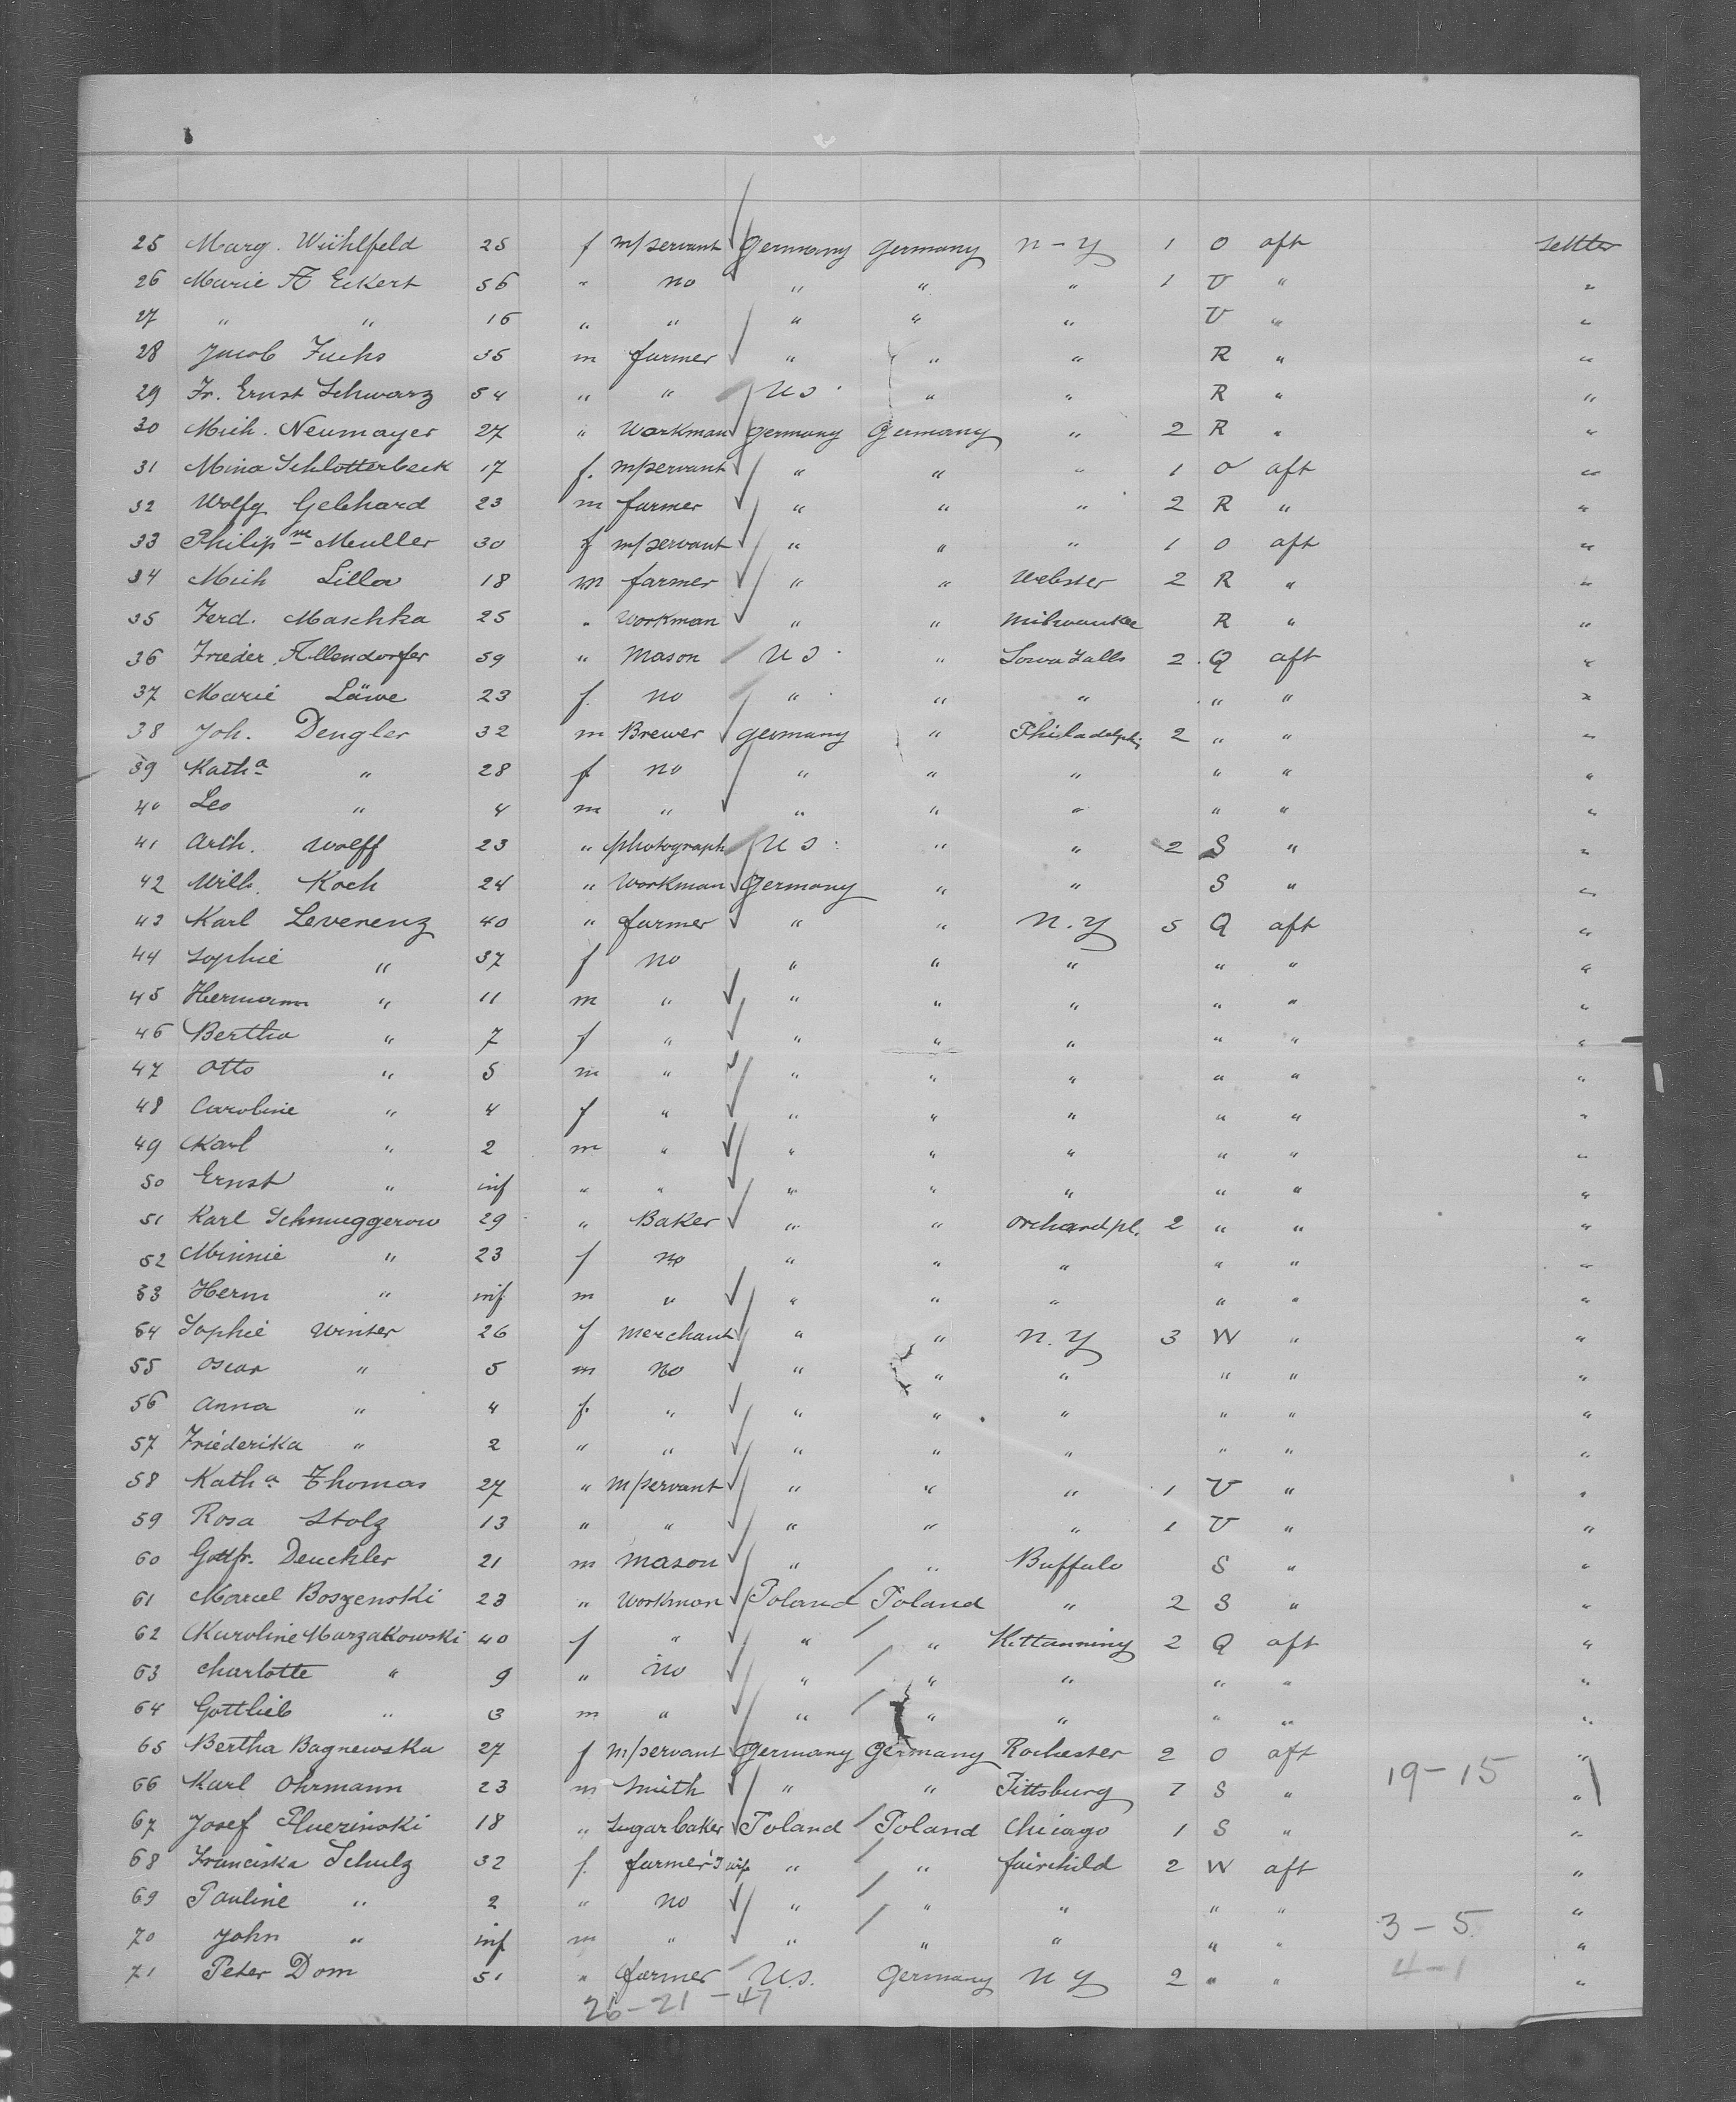 25 Marg. Wühlfeld 25 f m/servant Germany Germany n-y 1 O aft settler
26 Marie A Eckert 56 " no " " " 1 V " "
27 " " 16 " " " " " V " "
28 Jacob Fuchs 35 m farmer " " " R " "
29 Fr. Ernst Schwarz 54 " " US. " " R " "
30 Mich. Neumayer 27 " Workman Germany Germany " 2 R " "
31 Mina Schlotterbeck 17 f. m/servant " " " 1 O aft "
32 Wolfg Gebhard 23 m farmer " " " 2 R " "
33 Philip me Meuller 30 f m/servant " " " 1 O aft "
34 Mich Lilla 18 m farmer " " Webster 2 R " "
35 Ferd. Maschka 25 " Workman " " Milwaukee R " "
36 Frieder. Allendorfer 59 " Mason US. " Iowa Falls 2 Q aft "
37 Marie Läwe 23 f. no " " " " " "
38 Joh. Dengler 32 m Brewer Germany " Philadelphi 2 " " "
39 Katha " 28 f no " " " " " "
40 Leo " 4 m " " " " " " "
41 Arth. Wolff 23 " photograph US. " " 2 S " "
42 Wilh. Koch 24 " Workman Germany " " S " "
43 Karl Leverenz 40 " farmer " " N.Y 5 Q aft "
44 Sophie " 37 f no " " " " " "
45 Hermann " 11 m " " " " " " "
46 Bertha " 7 f " " " " " " "
47 Otto " 5 m " " " " " " "
48 Caroline " 4 f " " " " " " "
49 Karl " 2 m " " " " " " "
50 Ernst " inf " " " " " " " "
51 Karl Schmuggerow 29 " Baker " " Orchard pl. 2 " " "
52 Minnie " 23 f no " " " " " "
53 Herm " inf m " " " " " " "
54 Sophie Winter 26 f merchant " " N.Y 3 W " "
55 Oscar " 5 m no " " " " " "
56 Anna " 4 f. " " " " " " "
57 Friederika " 2 " " " " " " " "
58 Katha Thomas 27 " m/servant " " " 1 V " "
59 Rosa Stolz 13 " " " " " 1 V " "
60 Gottfr. Deuchler 21 m mason " " Buffalo S " "
61 Marcel Boszenski 23 " Workman Poland Poland " 2 S " "
62 Karoline Marzakowski 40 f " " " Kittanning 2 Q aft "
63 Charlotte " 9 " no " " " " " "
64 Gottlieb " 3 m " " " " " " "
65 Bertha Bagnewska 27 f m/servant Germany Germany Rochester 2 O aft "
66 Karl Ohrmann 23 m Smith " " Pittsburg 1 S " 19-15 "
67 Josef Pluezinski 18 " Sugarbaker Poland Poland Chicago 1 S " "
68 Franciska Schulz 32 f. farmer's wife " " fairchild 2 W aft "
69 Pauline " 2 " no " " " " " "
70 John " inf m " " " " " " 3-5 "
71 Peter Dom 51 " farmer U.S. Germany N Y 2 " " 4-1 "
26-21-47